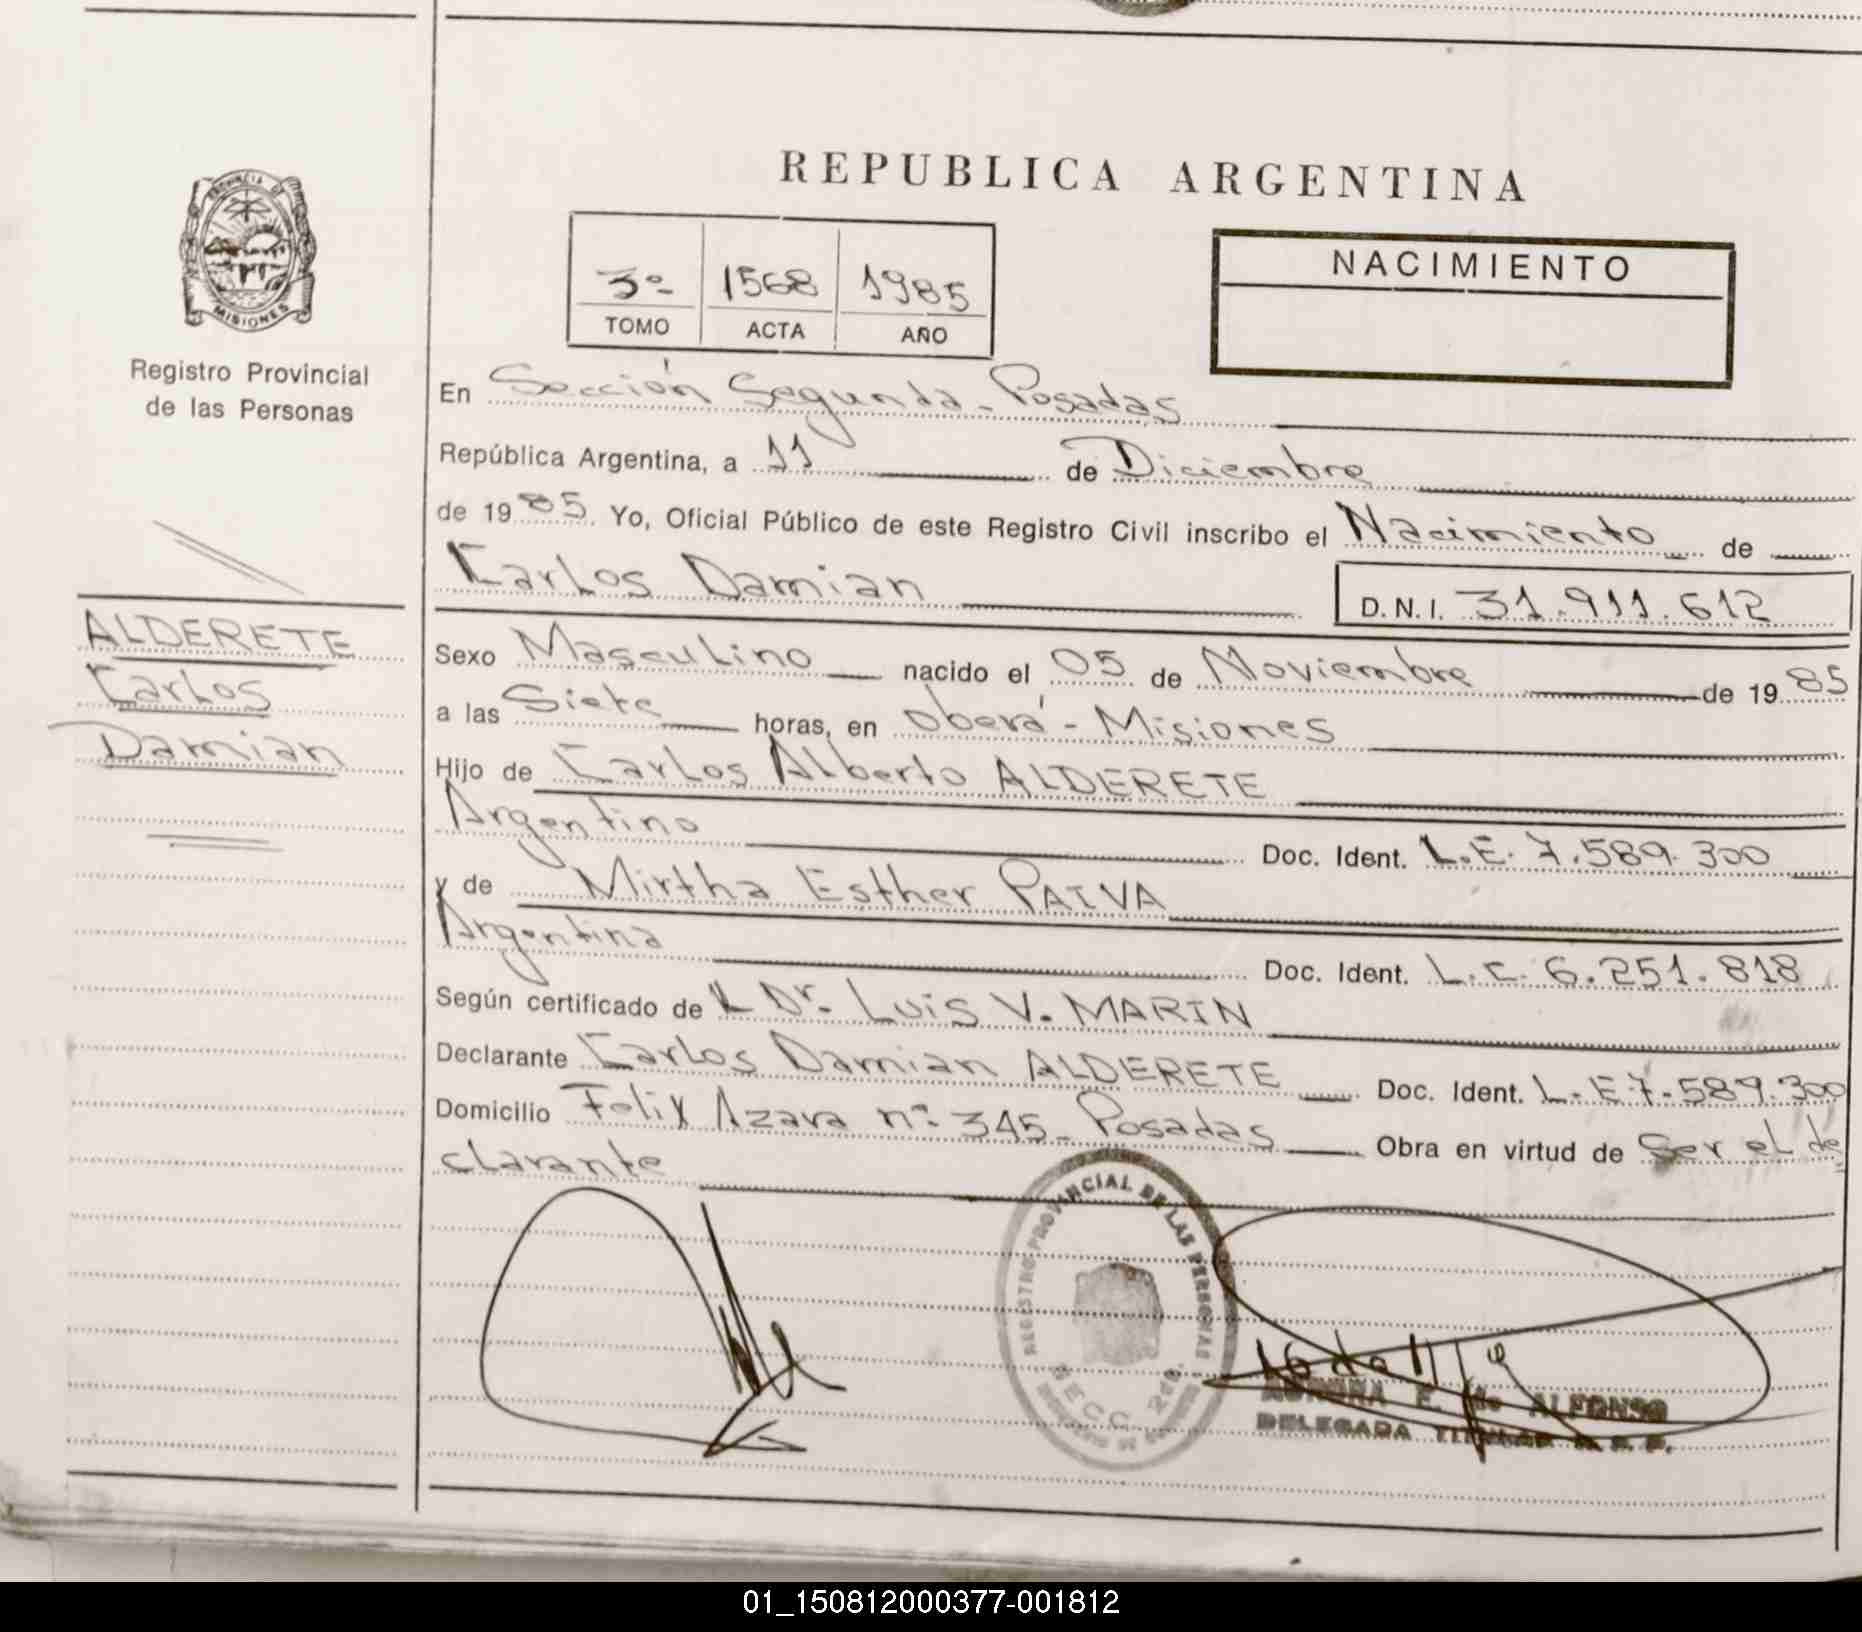 REPUBLICA ARGENTINA
PROVINCIA DE
MISIONES
Registro Provincial
de las Personas
3º 1568 1985
TOMO ACTA AÑO
NACIMIENTO
En Sección Segunda - Posadas
República Argentina, a 11 de Diciembre
de 1985. Yo, Oficial Público de este Registro Civil inscribo el Nacimiento de
Carlos Damian
D.N.I. 31.911.612
ALDERETE
Carlos
Damian
Sexo Masculino nacido el 05 de Noviembre de 1985
a las Siete horas, en Oberá - Misiones
Hijo de Carlos Alberto ALDERETE
Argentino Doc. Ident. L.E. 7.589.300
y de Mirtha Esther PAIVA
Argentina Doc. Ident. L.C. 6.251.818
Según certificado de L Dr. Luis V. MARIN
Declarante Carlos Damian ALDERETE Doc. Ident. L.E 7.589.300
Domicilio Felix Azara nº 345 - Posadas Obra en virtud de Ser el de
clarante
REGISTRO PROVINCIAL DE LAS PERSONAS
SECC. 2da.
E. de ALFONSO
DELEGADA TITULAR R. P. P.
01_150812000377-001812